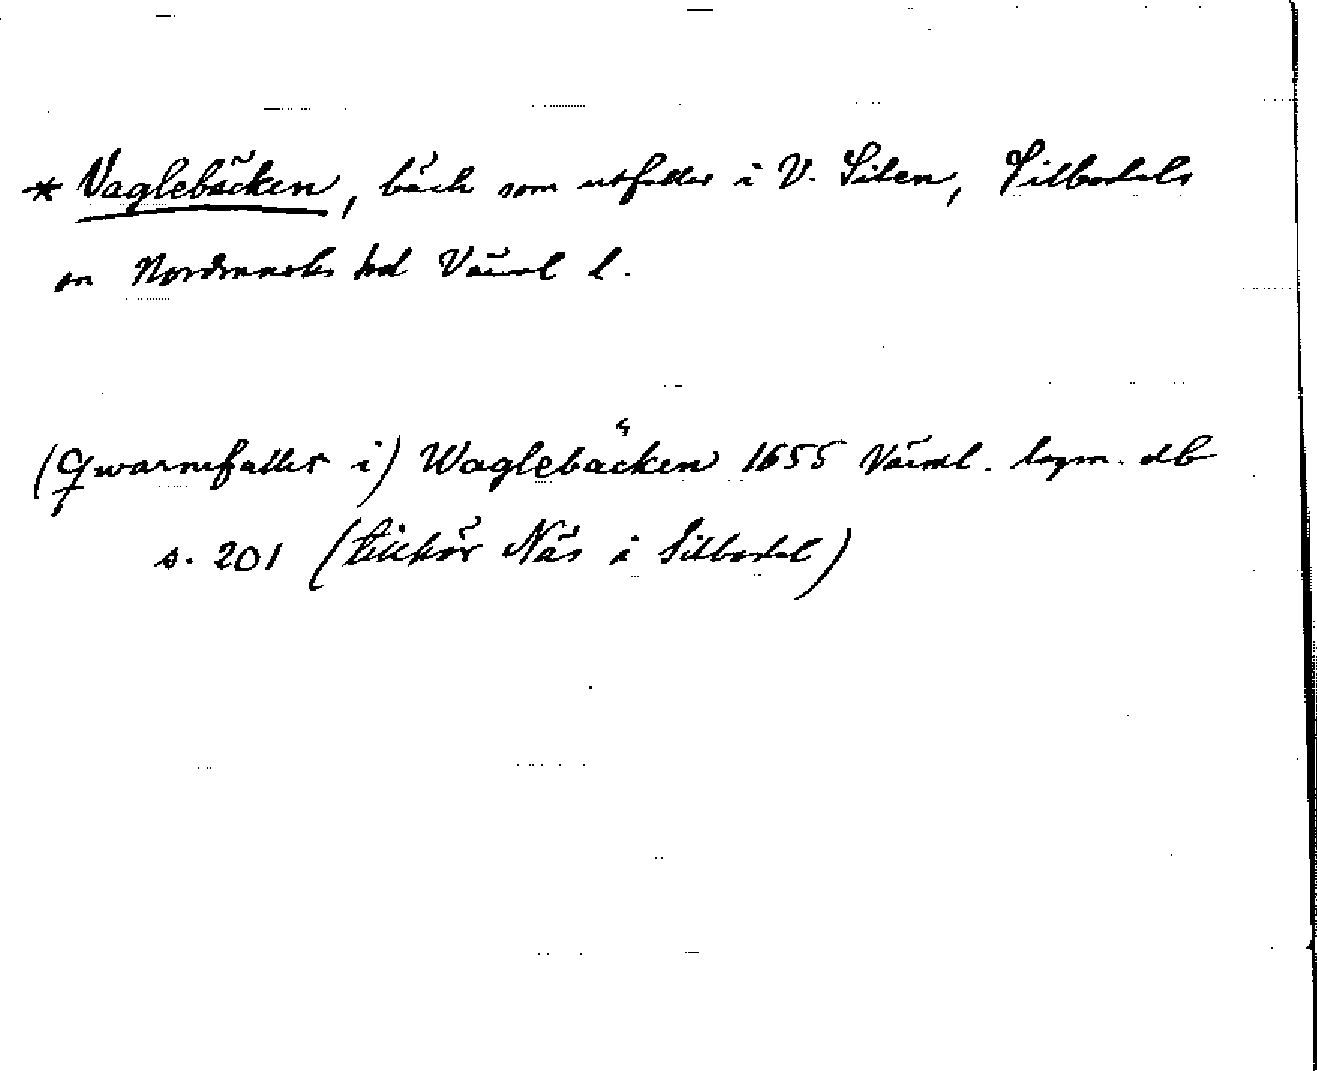 * Vaglebäcken, bäck som utfaller i V. Silen, Silbodals
sn Nordmarks hd Värml l.
(Qwarnefallet i) Waglebäcken 1655 Värml. lagm. db
s. 201 (tillhör Näs i Silbodal)